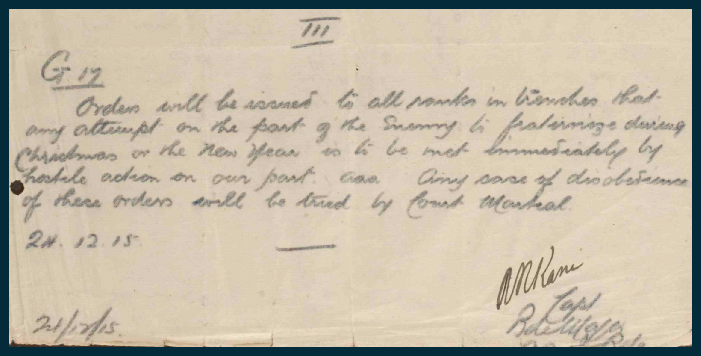 III
G 17
Orders will be issued to all ranks in trenches that
any attempt on the part of the Enemy to fraternize during
Christmas or the New Year is to be met immediately by
hostile action on our part aaa Any case of disobedience
of these orders will be tried by Court Martial.
24.12.15.
Capt
Bde Major
21/12/15.